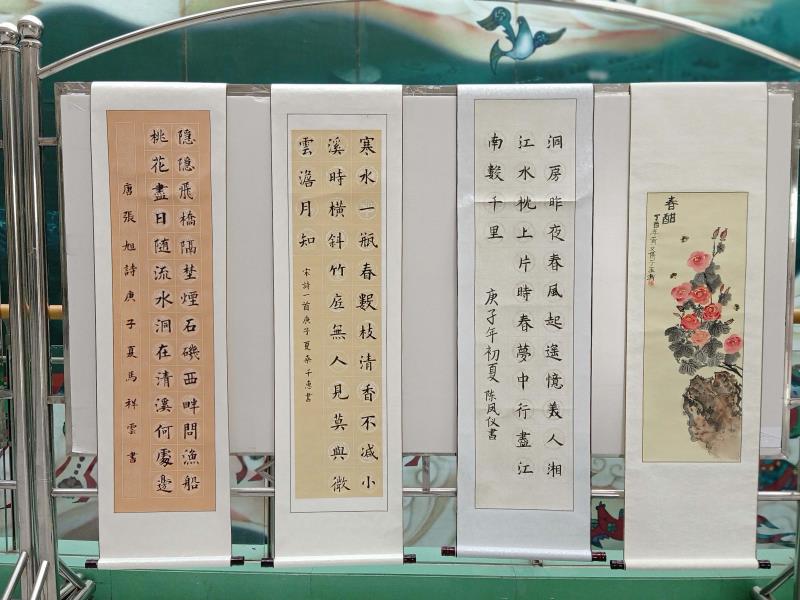 隐隐飛橋隔埜煙石磯西畔問漁船
桃花盡日随流水洞在清溪何處邊
唐張旭詩庚子夏馬祥雲書
寒水一瓶春數枝清香不減小
溪時橫斜竹庭無人見莫與微
雲澹月知
宋詩一首庚子夏千惠書
洞房昨夜春風起遥憶美人湘
江水枕上片時春夢中行盡江
南數千里
庚子年初夏陈凤仪書
春酣
丁酉年